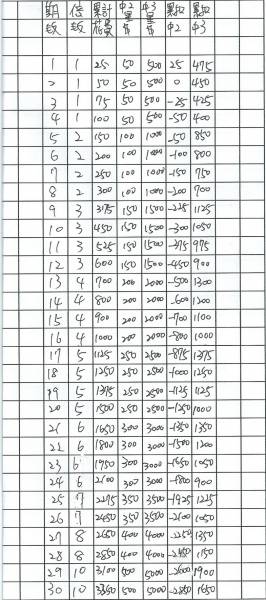 期 倍 累計 中2 中3
數 數 花費 星 星 中2 中3
1 1 25 50 500 25 475
2 1 50 50 500 0 450
3 1 75 50 500 -25 425
4 1 100 50 500 -50 400
5 2 150 100 1000 -50 850
6 2 200 100 1000 -100 800
7 2 250 100 1000 -150 750
8 2 300 100 1000 -200 700
9 3 375 150 1500 -225 1125
10 3 450 150 1500 -300 1050
11 3 525 150 1500 -375 975
12 3 600 150 1500 -450 900
13 4 700 200 2000 -500 1300
14 4 800 200 2000 -600 1200
15 4 900 200 2000 -700 1100
16 4 1000 200 2000 -800 1000
17 5 1125 250 2500 -875 1375
18 5 1250 250 2500 -1000 1250
19 5 1375 250 2500 -1125 1125
20 5 1500 250 2500 -1250 1000
21 6 1650 300 3000 -1350 1350
22 6 1800 300 3000 -1500 1200
23 6 1950 300 3000 -1650 1050
24 6 2100 300 3000 -1800 900
25 7 2275 350 3500 -1925 1225
26 7 2450 350 3500 -2100 1050
27 8 2650 400 4000 -2250 1350
28 8 2850 400 4000 -2450 1150
29 10 3100 500 5000 -2600 1900
30 10 3350 500 5000 -2850 1650